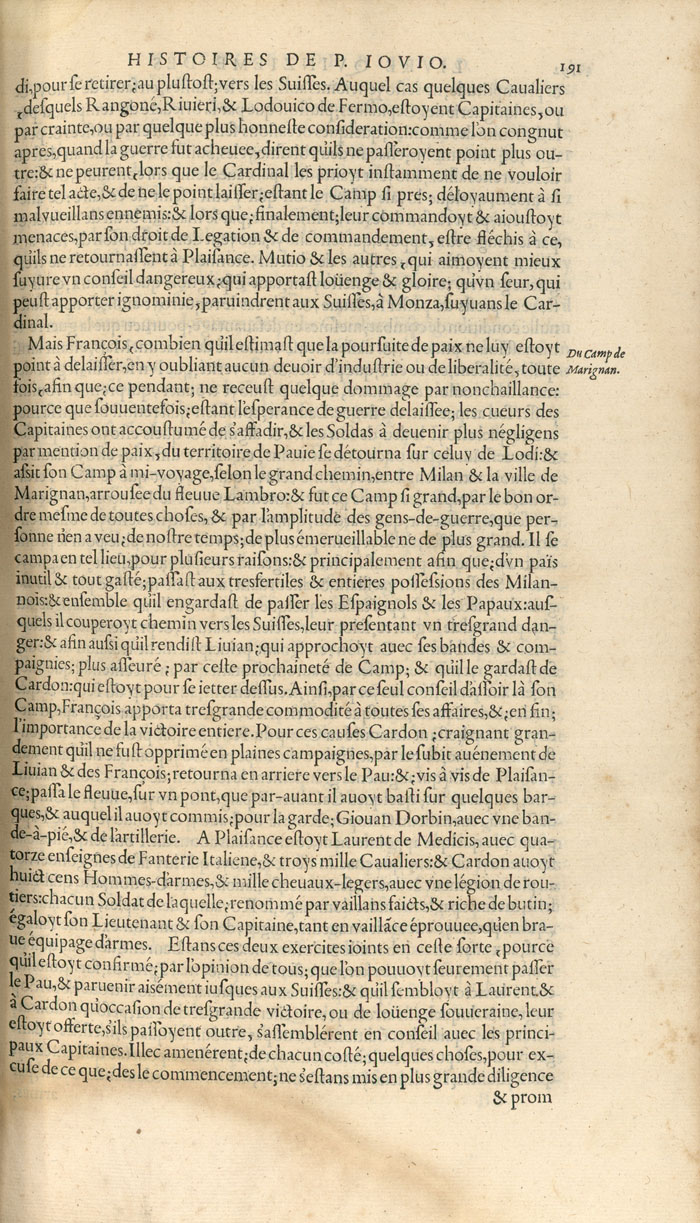 HISTOIRES DE P. IOVIO. 191
di,pour ſe retirer;au pluſtoſt;vers les Suiſſes. Auquel cas quelques Caualiers
,deſquels Rangone,Riuieri,& Lodouico de Fermo,eſtoyent Capitaines,ou
par crainte,ou par quelque plus honneſte conſideration:comme lon congnut
apres,quand la guerre fut acheuee,dirent quils ne paſſeroyent point plus ou-
tre:& ne peurent,lors que le Cardinal les prioyt inſtamment de ne vouloir
faire tel acte,& de ne le point laiſſer;eſtant le Camp ſi pres; déloyaument à ſi
malvueillans ennemis:& lors que;finalement;leur commandoyt & aiouſtoyt
menaces,par ſon droit de Legation & de commandement, eſtre fléchis à ce,
quils ne retournaſſent à Plaiſance. Mutio & les autres,qui aimoyent mieux
ſuyure vn conſeil dangereux;qui apportaſt loüenge & gloire; quvn ſeur, qui
peuſt apporter ignominie,paruindrent aux Suiſſes,à Monza,ſuyuans le Car-
dinal.
Mais François,combien quil eſtimaſt que la pourſuite de paix ne luy eſtoyt
Du Camp de
Marignan.
point à delaiſſer,en y oubliant aucun deuoir d'induſtrie ou de liberalité, toute
fois,afin que;ce pendant; ne receuſt quelque dommage par nonchaillance:
pource que ſouuentefois;eſtant l'eſperance de guerre delaiſſee; les cueurs des
Capitaines ont accouſtumé de s'affadir,& les Soldas à deuenir plus négligens
par mention de paix,du territoire de Pauie ſe détourna ſur celuy de Lodi:&
aſſit ſon Camp à mi-voyage,ſelon le grand chemin,entre Milan & la ville de
Marignan,arrouſee du fleuue Lambro:& fut ce Camp ſi grand,par le bon or-
dre meſme de toutes choſes, & par l'amplitude des gens-de-guerre,que per-
ſonne n'en a veu;de noſtre temps;de plus émerueillable ne de plus grand. Il ſe
campa en tel lieu,pour pluſieurs raiſons:& principalement afin que;dvn païs
inutil & tout gaſté;paſſaſt aux treſfertiles & entieres poſſeſſions des Milan-
nois:& enſemble quil engardaſt de paſſer les Eſpaignols & les Papaux:auſ-
quels il couperoyt chemin vers les Suiſſes,leur preſentant vn treſgrand dan-
ger:& afin auſſi quil rendiſt Liuian;qui approchoyt auec ſes bandes & com-
paignies; plus aſſeuré ; par ceſte prochaineté de Camp; & quil le gardaſt de
Cardon:qui eſtoyt pour ſe ietter deſſus. Ainſi,par ce ſeul conſeil d'aſſoir là ſon
Camp,François apporta treſgrande commodité à toutes ſes affaires,&;en fin;
l'importance de la victoire entiere. Pour ces cauſes Cardon ;craignant gran-
dement quil ne fuſt opprimé en plaines campaignes,par le ſubit auénement de
Liuian & des François;retourna en arriere vers le Pau:&;vis à vis de Plaiſan-
ce;paſſa le fleuue,ſur vn pont,que par-auant il auoyt baſti ſur quelques bar-
ques,& auquel il auoyt commis;pour la garde;Giouan Dorbin,auec vne ban-
de-à-pié,& de l'artillerie. A Plaiſance eſtoyt Laurent de Medicis, auec qua-
torze enſeignes de Fanterie Italiene,& troys mille Caualiers:& Cardon auoyt
huict cens Hommes-d'armes,& mille cheuaux-legers,auec vne légion de rou-
tiers:chacun Soldat de laquelle;renommé par vaillans faicts,& riche de butin;
égaloyt ſon Lieutenant & ſon Capitaine,tant en vaillãce éprouuee,qu'en bra-
ue équipage d'armes. Eſtans ces deux exercites ioints en ceſte ſorte,pource
quil eſtoyt confirmé;par l'opinion de tous;que lon pouuoyt ſeurement paſſer
le Pau,& paruenir aisément iuſques aux Suiſſes:& quil ſembloyt à Laurent,&
à Cardon qu'occaſion de treſgrande victoire, ou de loüenge ſouueraine, leur
eſtoyt offerte,s'ils paſſoyent outre, s'aſſemblérent en conſeil auec les princi-
paux Capitaines. Illec amenérent;de chacun coſté;quelques choſes,pour ex-
cuſe de ce que;des le commencement;ne s'eſtans mis en plus grande diligence
& prom